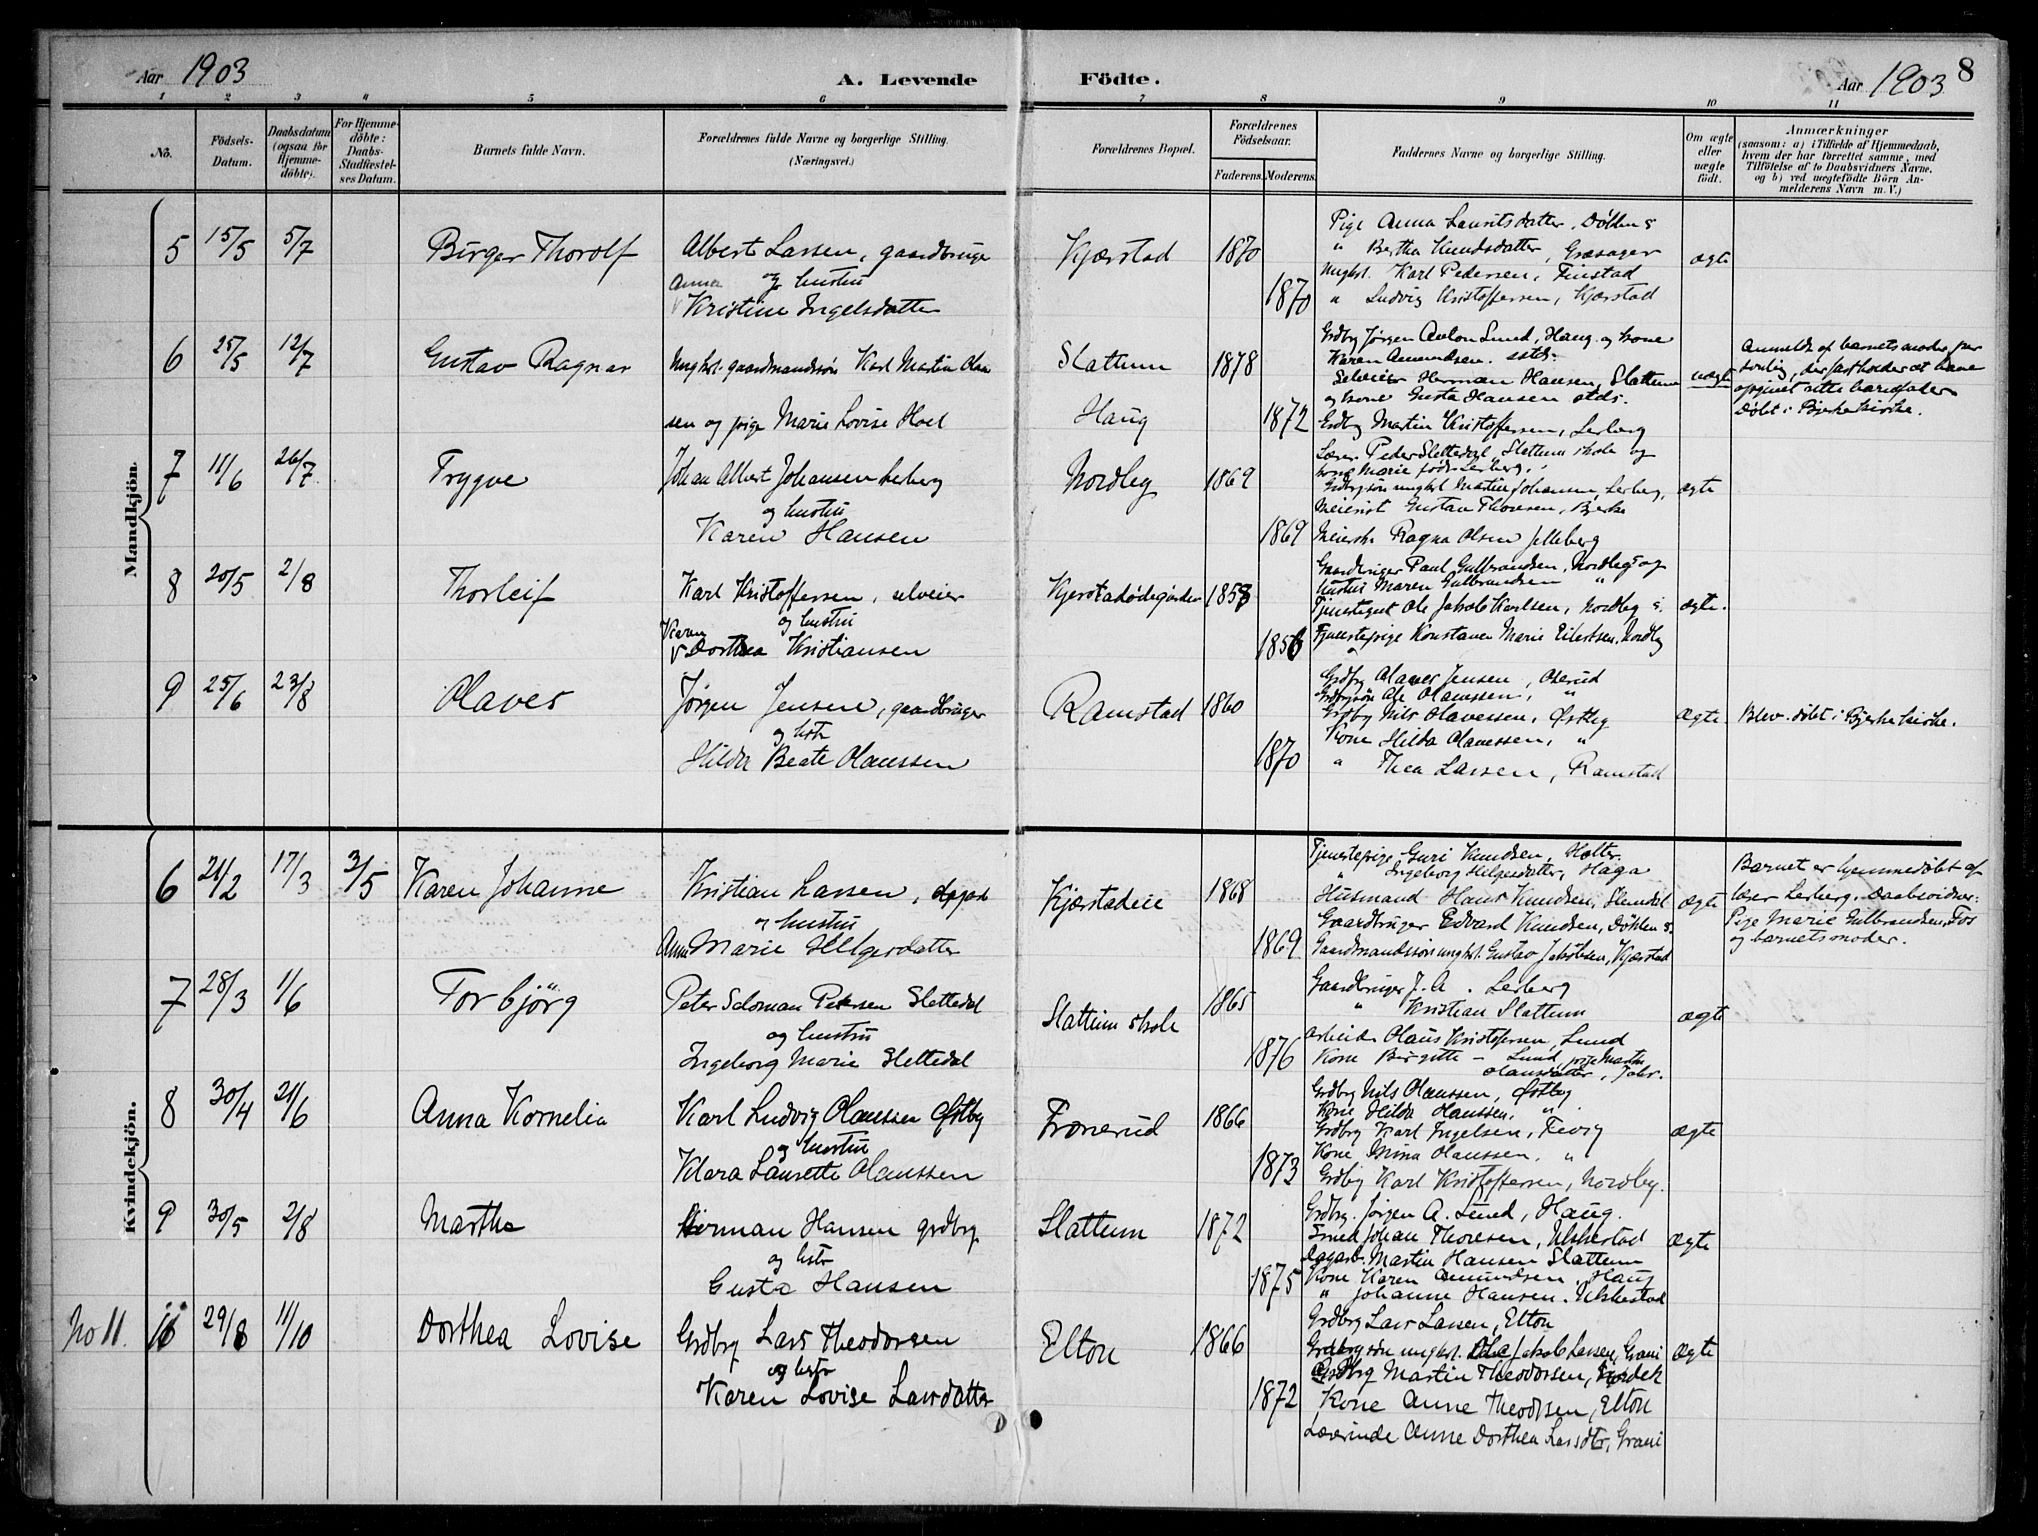 Aar 1903
A. Levende
Födte.
Aar 1903
8
1 2 3 4 5 6 7 8 9 10 11
No.
Födsels-
Datum.
Daabsdatum
(ogsaa for
Hjemme-
döbte).
For Hjemme-
döbte:
Daabs-
Stadfæstel-
ses Datum.
Barnets fulde Navn.
Forældrenes fulde Navne og borgerlige Stilling.
(Næringsvei.)
Forældrenes Bopæl.
Forældrenes
Födselsaar.
Faderens. Moderens.
Faddernes Navne og borgerlige Stilling.
Om ægte
eller
uægte
födt.
Anmærkninger
(saasom: a) i Tilfælde af Hjemmedaab,
hvem der har forrettet samme, med
Tilföielse af to Daabsvidners Navne,
og b) ved uægtefödte Börn An-
melderens Navn m. V.)
Mandkjön.
5 15/5 5/7 Birger Thorolf
Albert Larsen, gaardbruger
og hustru
Anna
Kristine Ingelsdatter
Kjærstad 1870
1870
Pige Anna Lauritsdatter, Døhlen s
" Bertha Knudsdatter, Græsager
Ungkl. Karl Pedersen, Finstad
" Ludvig Kristoffersen, Kjærstad
ægte
6 25/5 12/7 Gustav Ragnar
Ungkl. gaardmandssøn Karl Martin Olau
sen og pige Marie Lovise Hoel
Slattum 1878
Haug 1872
Grdbr Jørgen Anton Lund, Haug og kone
Karen Amundsen. sstds.
Selveier Herman Hansen, Slattum
og kone Gusta Hansen stds.
Grdbr Martin Kristoffersen, Lerberg
uægte
Anmeldt af barnets moder per
sonlig, der fastholder at have
opgivet rette barnefader
Døbt i Bjerke kirke.
7 11/6 26/7 Trygve
Johan Albert Johansen Lerberg
og hustru
Karen Hansen
Nordby 1869
1869
Lærer Peder Slettedal, Slattum skole og
kone Marie født Lerberg.
Grdbrsøn ungkl Martin Johansen, Lerberg,
Meierist Gustav Thoresen, Bjerke
Meiersk. Ragna Olsen Jelleberg
ægte
8 20/5 2/8 Thorleif
Karl Kristoffersen, selveier
og hustru
Karen
Dorthea Kristiansen
Kjerstadødegården 1857
1856
Gaardbruger Paul Gulbrandsen, Nordby s og
hustru Maren Gulbrandsen "
Tjenestegut Ole Jakob Karlsen, Nordby s.
Tjenestepige Konstance Marie Eilertsen, Nordby
ægte.
9 25/6 23/8 Olaves
Jørgen Jensen, gaardbruger
og hstr
Hilda Beate Olaussen
Ramstad 1860
1870
Grdbr Olaves Jensen, Oserud
Grdbrsøn Ole Olaussen, "
Grdbr Nils Olavessen, Østby
Kone Hilda Olavessen, "
" Thea Larsen, Ramstad
ægte
Blev døbt i Bjerke kirke.
Kvindekjön.
6 21/2 17/3 3/5 Karen Johanne
Kristian Larsen, dagarb
og hustru
Anne Marie Helgesdatter
Kjærstadeie 1868
1869
Tjenestepige Guri Knudsen, Holter
" Ingeborg Helgesdatter, Haga
Husmand Hans Knudsen, Slemdal
Gaardbruger Edvard Knudsen, Døhlen s.
Gaardmandssøn ungkl. Gustav Jakobsen, Kjærstad
ægte
Barnet er hjemmedøbt af
lærer Lerberg. Daabsvidner:
Pige Marie Gulbrandsen, Fos
og barnets moder.
7 28/3 1/6 Torbjörg
Peter Salomon Petersen Slettedal
og hustru
Ingeborg Marie Slettedal
Slattum skole 1865
1876
Gaardbruger J. A. Lerberg
" Kristian Slattum
Arbeider Olaus Kristoffersen, Lund
Kone Birgitte - Lund pige Marthe
Olausdatter,
ægte
8 30/4 21/6 Anna Kornelia
Karl Ludvig Olaussen Østby
og hustru
Klara Laurette Olaussen
Fronerud 1866
1873
Grdbr Nils Olaussen, Østby
Kone Hilda Olaussen, "
Grdbr Karl Ingelsen, Tevig
Kone Mina Olaussen. "
Grdbr Karl Kristoffersen, Nordby.
ægte
9 30/5 2/8 Marthe
Herman Hansen grdbr
og hstr
Gusta Hansen
Slattum 1872
1875
Grdbr. Jørgen A. Lund, Haug.
Smed Johan Thoresen, Ulshestad
Dagarb. Martin Hansen Slattum
Kone Karen Amundsen, Haug
" Johanne Hansen, Ulshestad
ægte
No 11. 10 29/8 11/10 Dorthea Lovise
Grdbr Lars Theodorsen
og hstr
Karen Lovise Larsdatter
Elton 1866
1872
Grdbr Lars Larsen, Elton
Grdbrsøn ungkl. Ole Jakob Larsen, Grani
Grdbr Martin Theodorsen,
Kone Anne Theodorsen, Elton
Lærerinde Anne Dorthea Larsdtr, Grani
ægte